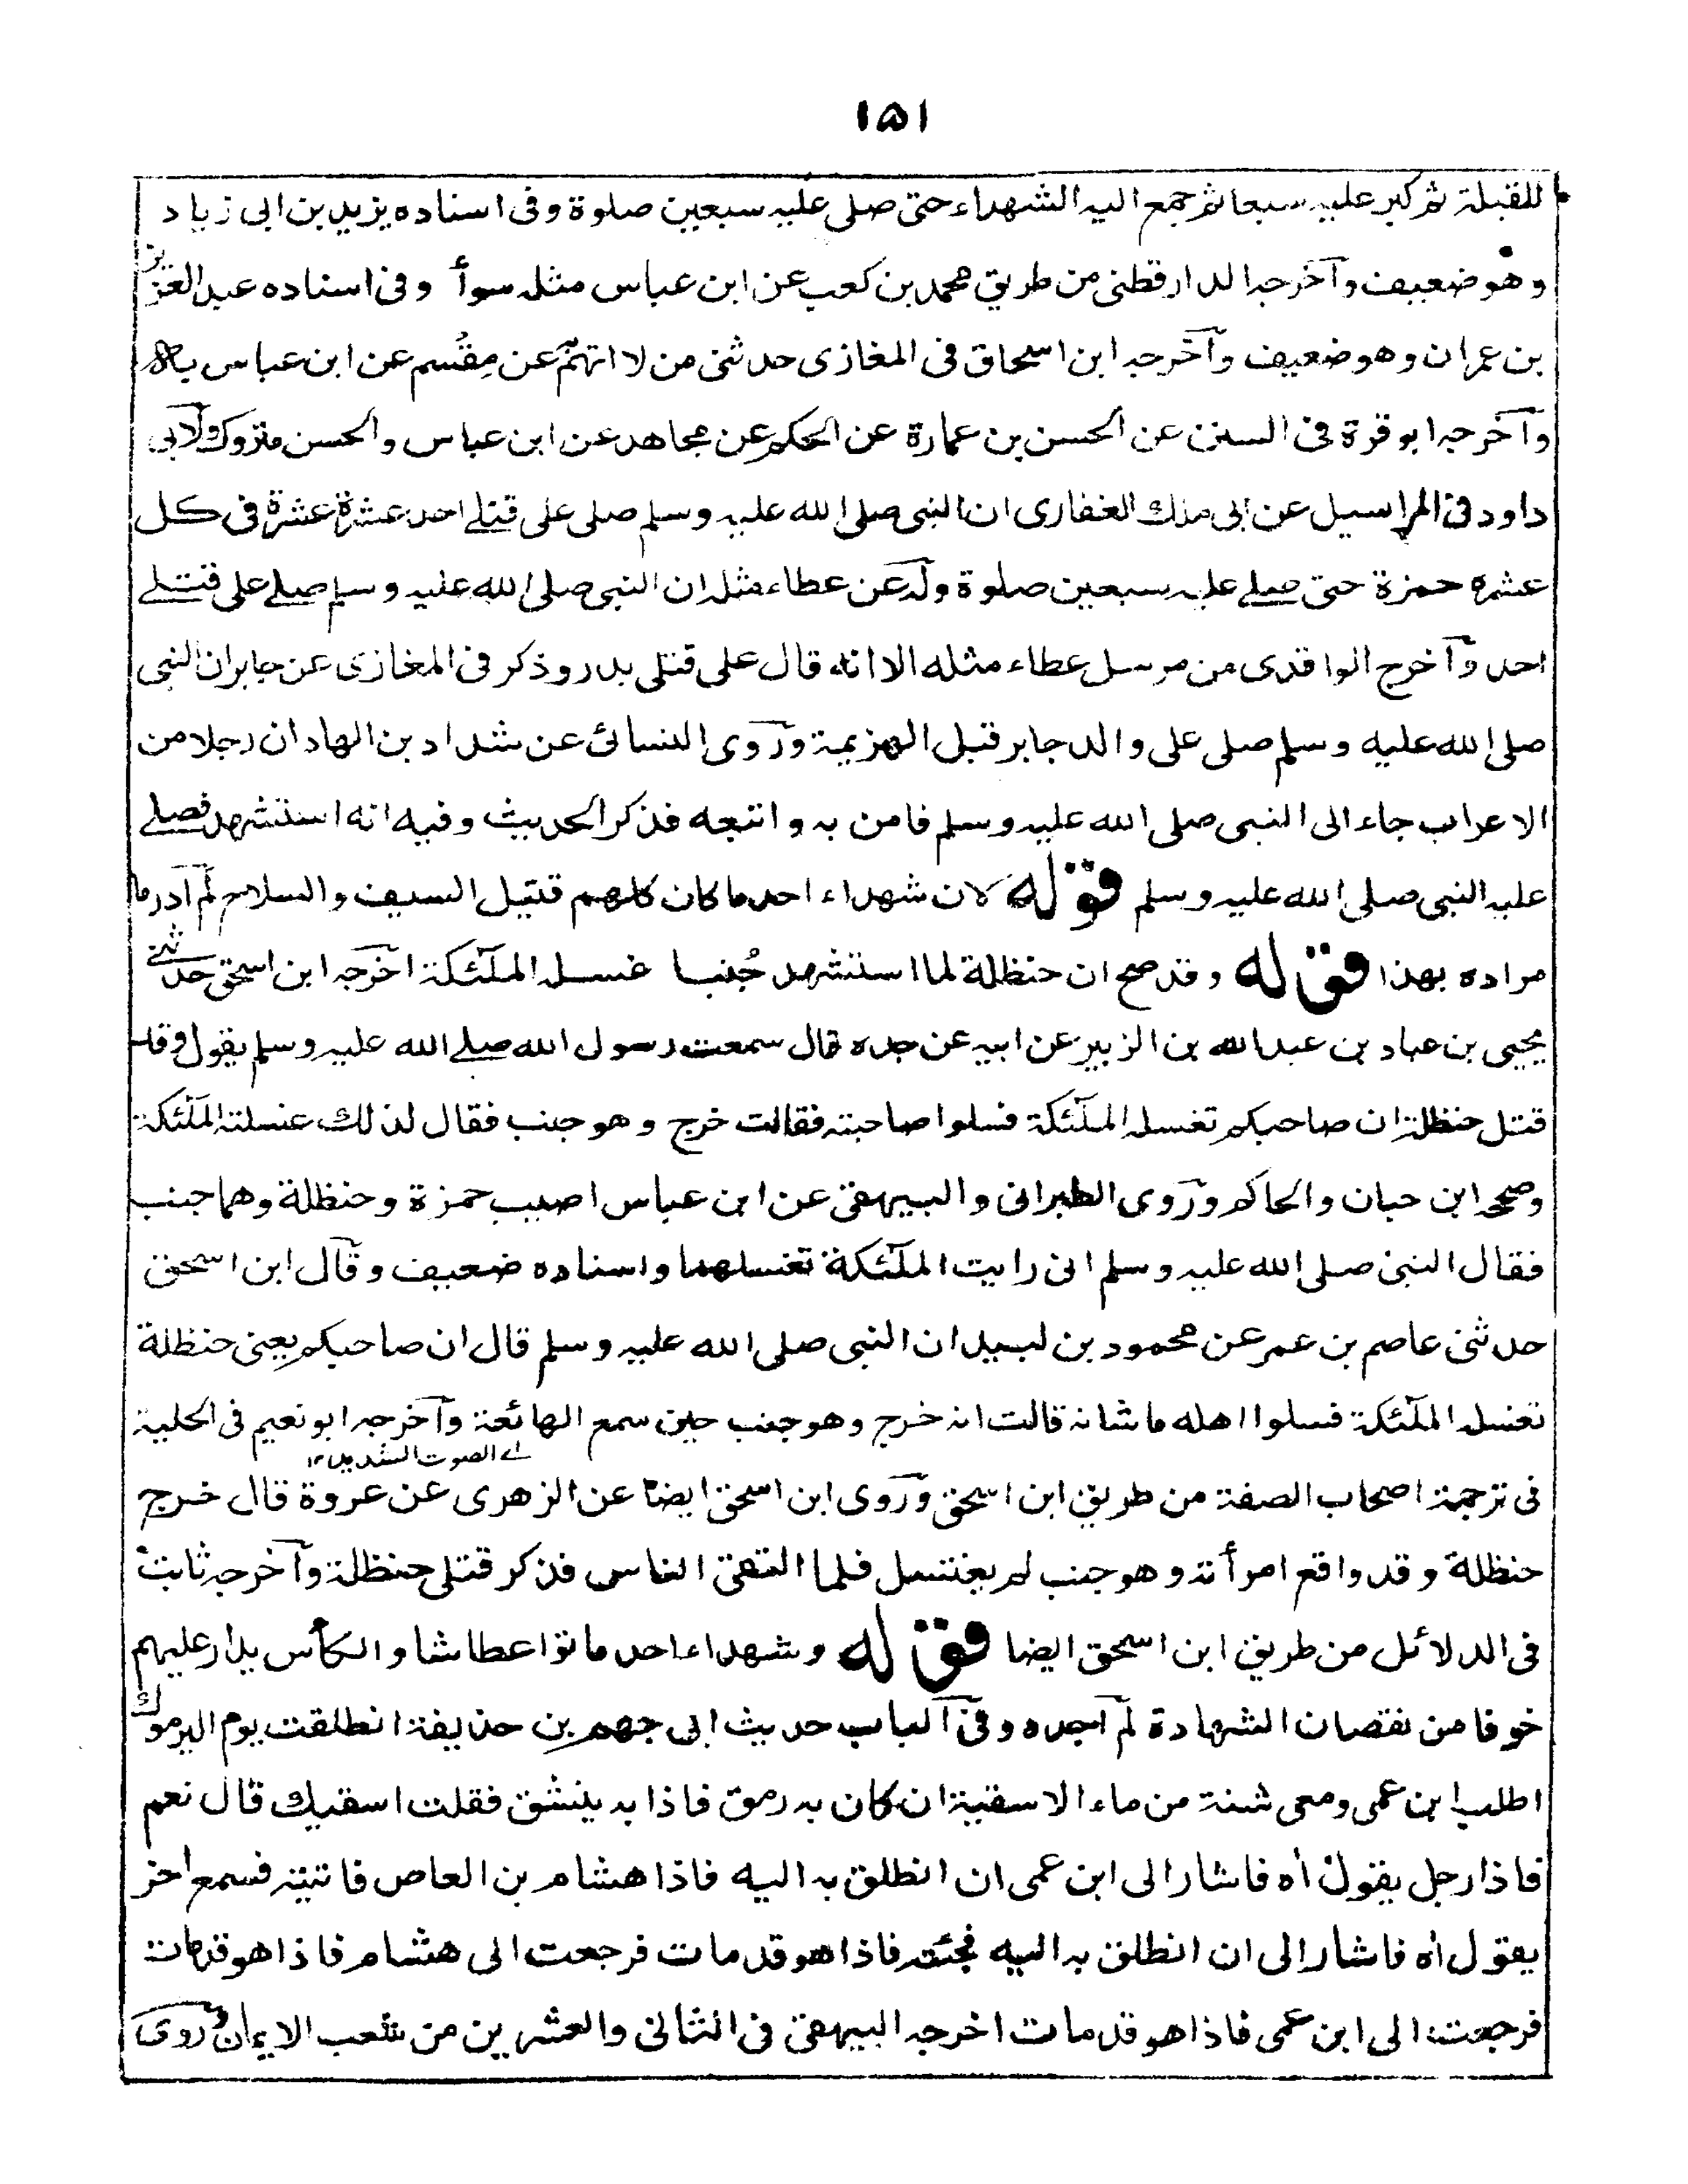 ١٥١
للقبلة ثم كبر عليه سبعا ثم جمع اليه الشهداء حتى صلى عليه سبعين صلوة وفى اسناده يزيد بن ابى زياد
وهو ضعيف وآخرجه الدارقطنى من طريق محمد بن كعب عن ابن عباس مثله سوأ وفى اسناده عبد العزيز
بن عمران وهو ضعيف وآخرجه ابن اسحاق فى المغازى حدثنى من لا اتهم عن مِقْسم عن ابن عباس به
وآخرجه ابو قرة فى السنن عن الحسن بن عمارة عن الحكم عن مجاهد عن ابن عباس والحسن متروك ولآبى
داود فى المراسيل عن ابى مالك الغفارى ان النبى صلى الله عليه وسلم صلى على قتلے احد عشرة عشرة فى كل
عشرة حمزة حتى صلے عليه سبعين صلوة ولٓه عن عطاء مثله ان النبى صلى الله عليه وسلم صلے على قتلے
احد وآخرج الواقدى من مرسل عطاء مثله الا انه قال على قتلى بدر وذكر فى المغازى عن جابر ان النبى
صلى الله عليه وسلم صلى على والد جابر قبل الهزيمة ورٓوى النسائى عن شداد بن الهاد ان رجلا من
الاعراب جاء الى النبى صلى الله عليه وسلم فامن به واتبعه فذكر الحديث وفيه انه استشهد فصلے
عليه النبى صلى الله عليه وسلم قوله لان شهداء احد ما كان كلهم قتيل السيف والسلاح لٓم آدر ما
مراده بهذا قوله وقد صح ان حنظلة لما استشهد جُنبا غسله الملٓئكة اخرجه ابن اسحق حدثنے
يحيى بن عباد بن عبد الله بن الزبير عن ابيه عن جده قال سمعت رسول الله صلے الله عليه وسلم يقول وقد
قتل حنظلة ان صاحبكم تغسله الملٓئكة فسلوا صاحبته فقالت خرج وهو جنب فقال لذلك غسلته الملٓئكة
وصححه ابن حبان والحاكم ورٓوى الطبرانى والبيهقى عن ابن عباس اصيب حمزة وحنظلة وهما جنب
فقال النبى صلى الله عليه وسلم انى رايت الملٓئكة تغسلهما واسناده ضعيف وقٓال ابن اسحق
حدثنى عاصم بن عمر عن محمود بن لبيد ان النبى صلى الله عليه وسلم قال ان صاحبكم يعنى حنظلة
تغسله الملٓئكة فسلوا اهله ما شانه قالت انه خرج وهو جنب حين سمع الهائعة وآخرجه ابو نعيم فى الحلية
اے الصوت الشديد ١٢
فى ترجمة اصحاب الصفة من طريق ابن اسحق ورٓوى ابن اسحق ايضا عن الزهرى عن عروة قال خرج
حنظلة وقد واقع امرأته وهو جنب لم يغتسل فلما التقى الناس فذكر قتلى حنظلة وآخرجه ثابت
فى الدلائل من طريق ابن اسحق ايضا قوله وشهداء احد ماتوا عطاشا والكأس يدار عليهم
خوفا من نقصان الشهادة لٓم آجده وفى آلباب حديث ابى جهم بن حذيفة انطلقت يوم اليرموك
اطلب ابن عمى ومعى شنة من ماء الاسقية ان كان به رمق فاذا به ينشق فقلت اسقيك قال نعم
فاذا رجل يقول أه فاشار الى ابن عمى ان انطلق به اليه فاذا هشام بن العاص فاتيته فسمع اخر
يقول أه فاشار الى ان انطلق به اليه فجئته فاذا هو قد مات فرجعت الى هشام فاذا هو قد مات
فرجعت الى ابن عمى فاذا هو قد مات اخرجه البيهقى فى الثانى والعشرين من شعب الايمان ورٓوى